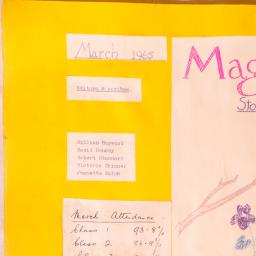 March 1965
Editors & scribes.
Gillian Haywood
Robert Stannard
Victoria Skinner
Jeanette Walsh
March Attendance
Class 1 93.8%
Class 2
Mag
Sto